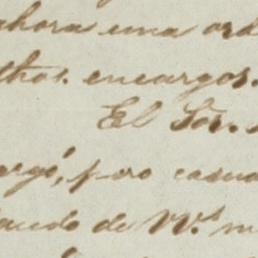 ahora una ord
thos. encargos.
El Sor.
argó, pero casua
ando de VV.s m